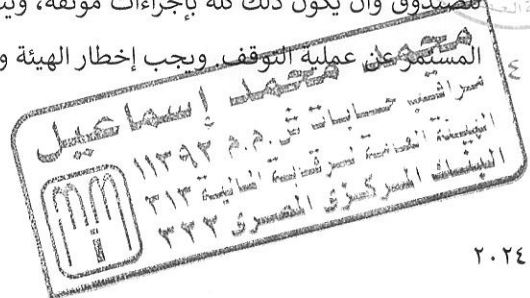 للصندوق وأن يكون ذلك كله بإجراءات موثقة، وي
المستمر عن عملية التوقف. ويجب إخطار الهيئة و
٤
محمد محمد إسماعيل
مراقب حسابات س.م.م ١١٣٩٢
الهيئة العامة للرقابة المالية ٣١٣
البنك المركزى المصرى ٢٢٢
٢٠٢٤